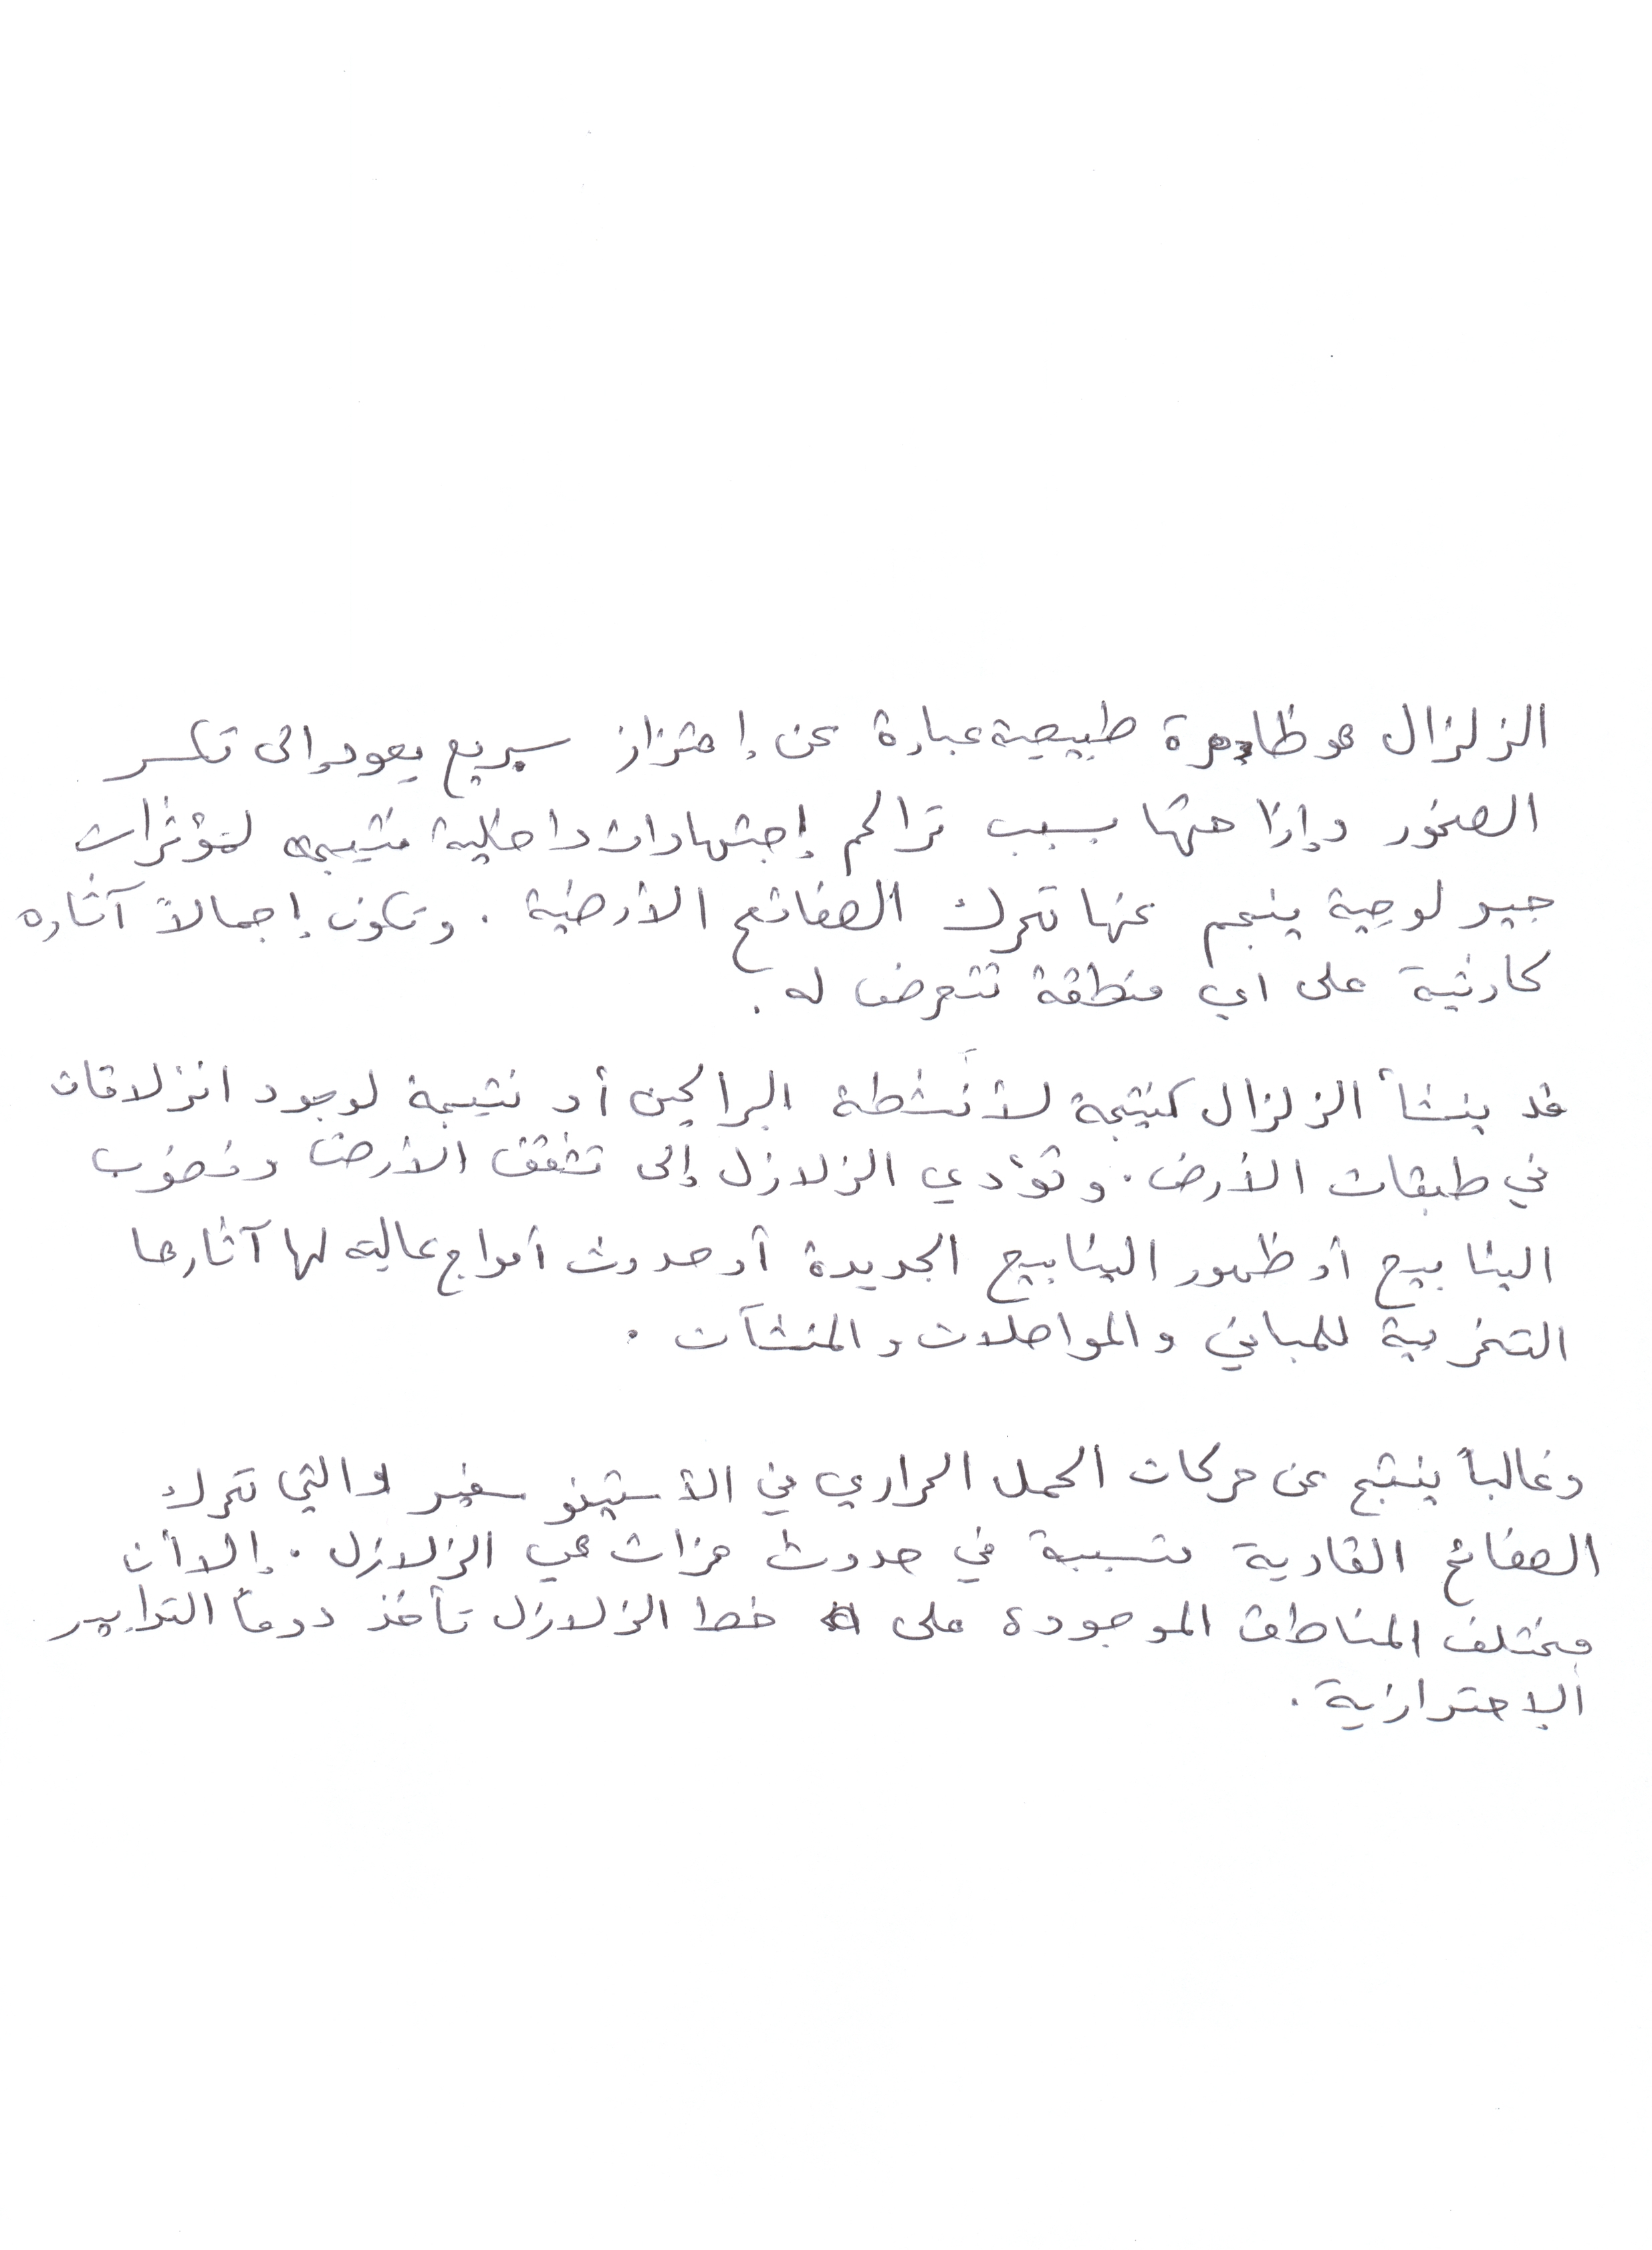 الزلزال هو ظاهرة طبيعية عبارة عن إهتزاز سريع يعود إلى تكسر
الصخور وإزاحتها بسبب تراكم إجتهادات داخلية نتيجة لمؤثرات
جيولوجية ينجم عنها تحرك الصفائح الأرضية . وتكون إجمالاً آثاره
كارثية على اي منطقة تتعرض له .
قد ينشأ الزلزال كنتيجة لأنشطة البراكين أو نتيجة لوجود انزلاقات
في طبقات الأرض . وتؤدي الزلازل إلى تشقق الأرض ونضوب
الينابيع أو ظهور الينابيع الجديدة أو حدوث أمواج عالية لها آثارها
التخريبية للمباني والمواصلات والمنشآت .
وغالباً ينتج عن حركات الحمل الحراري في الأستينوسفير والتي تحرك
الصفائح القارية متسببة في حدوث هزات هي الزلازل . إلا أن
مختلف المناطق الموجودة على خط الزلازل تأخذ دوماً التدابير
الإحترازية .